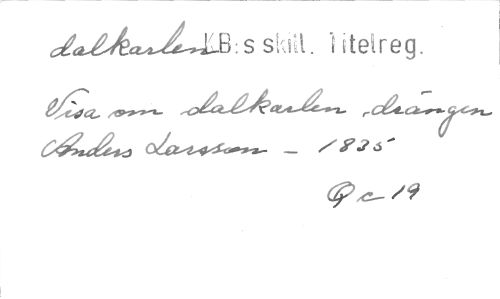 dalkarlen KB:s skill. Titelreg.
Visa om dalkarlen, drängen
Anders Larsson – 1835
Q c 19